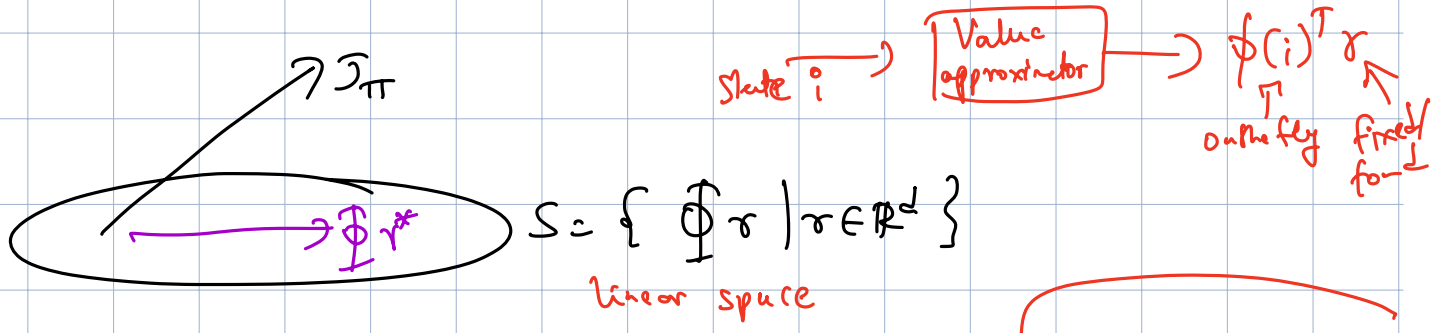 J_π
State i → Value approximator → ϕ(i)^T r
on the fly
fixed/
found
Φ r*
S = { Φ r | r ∈ ℝ^d }
linear space